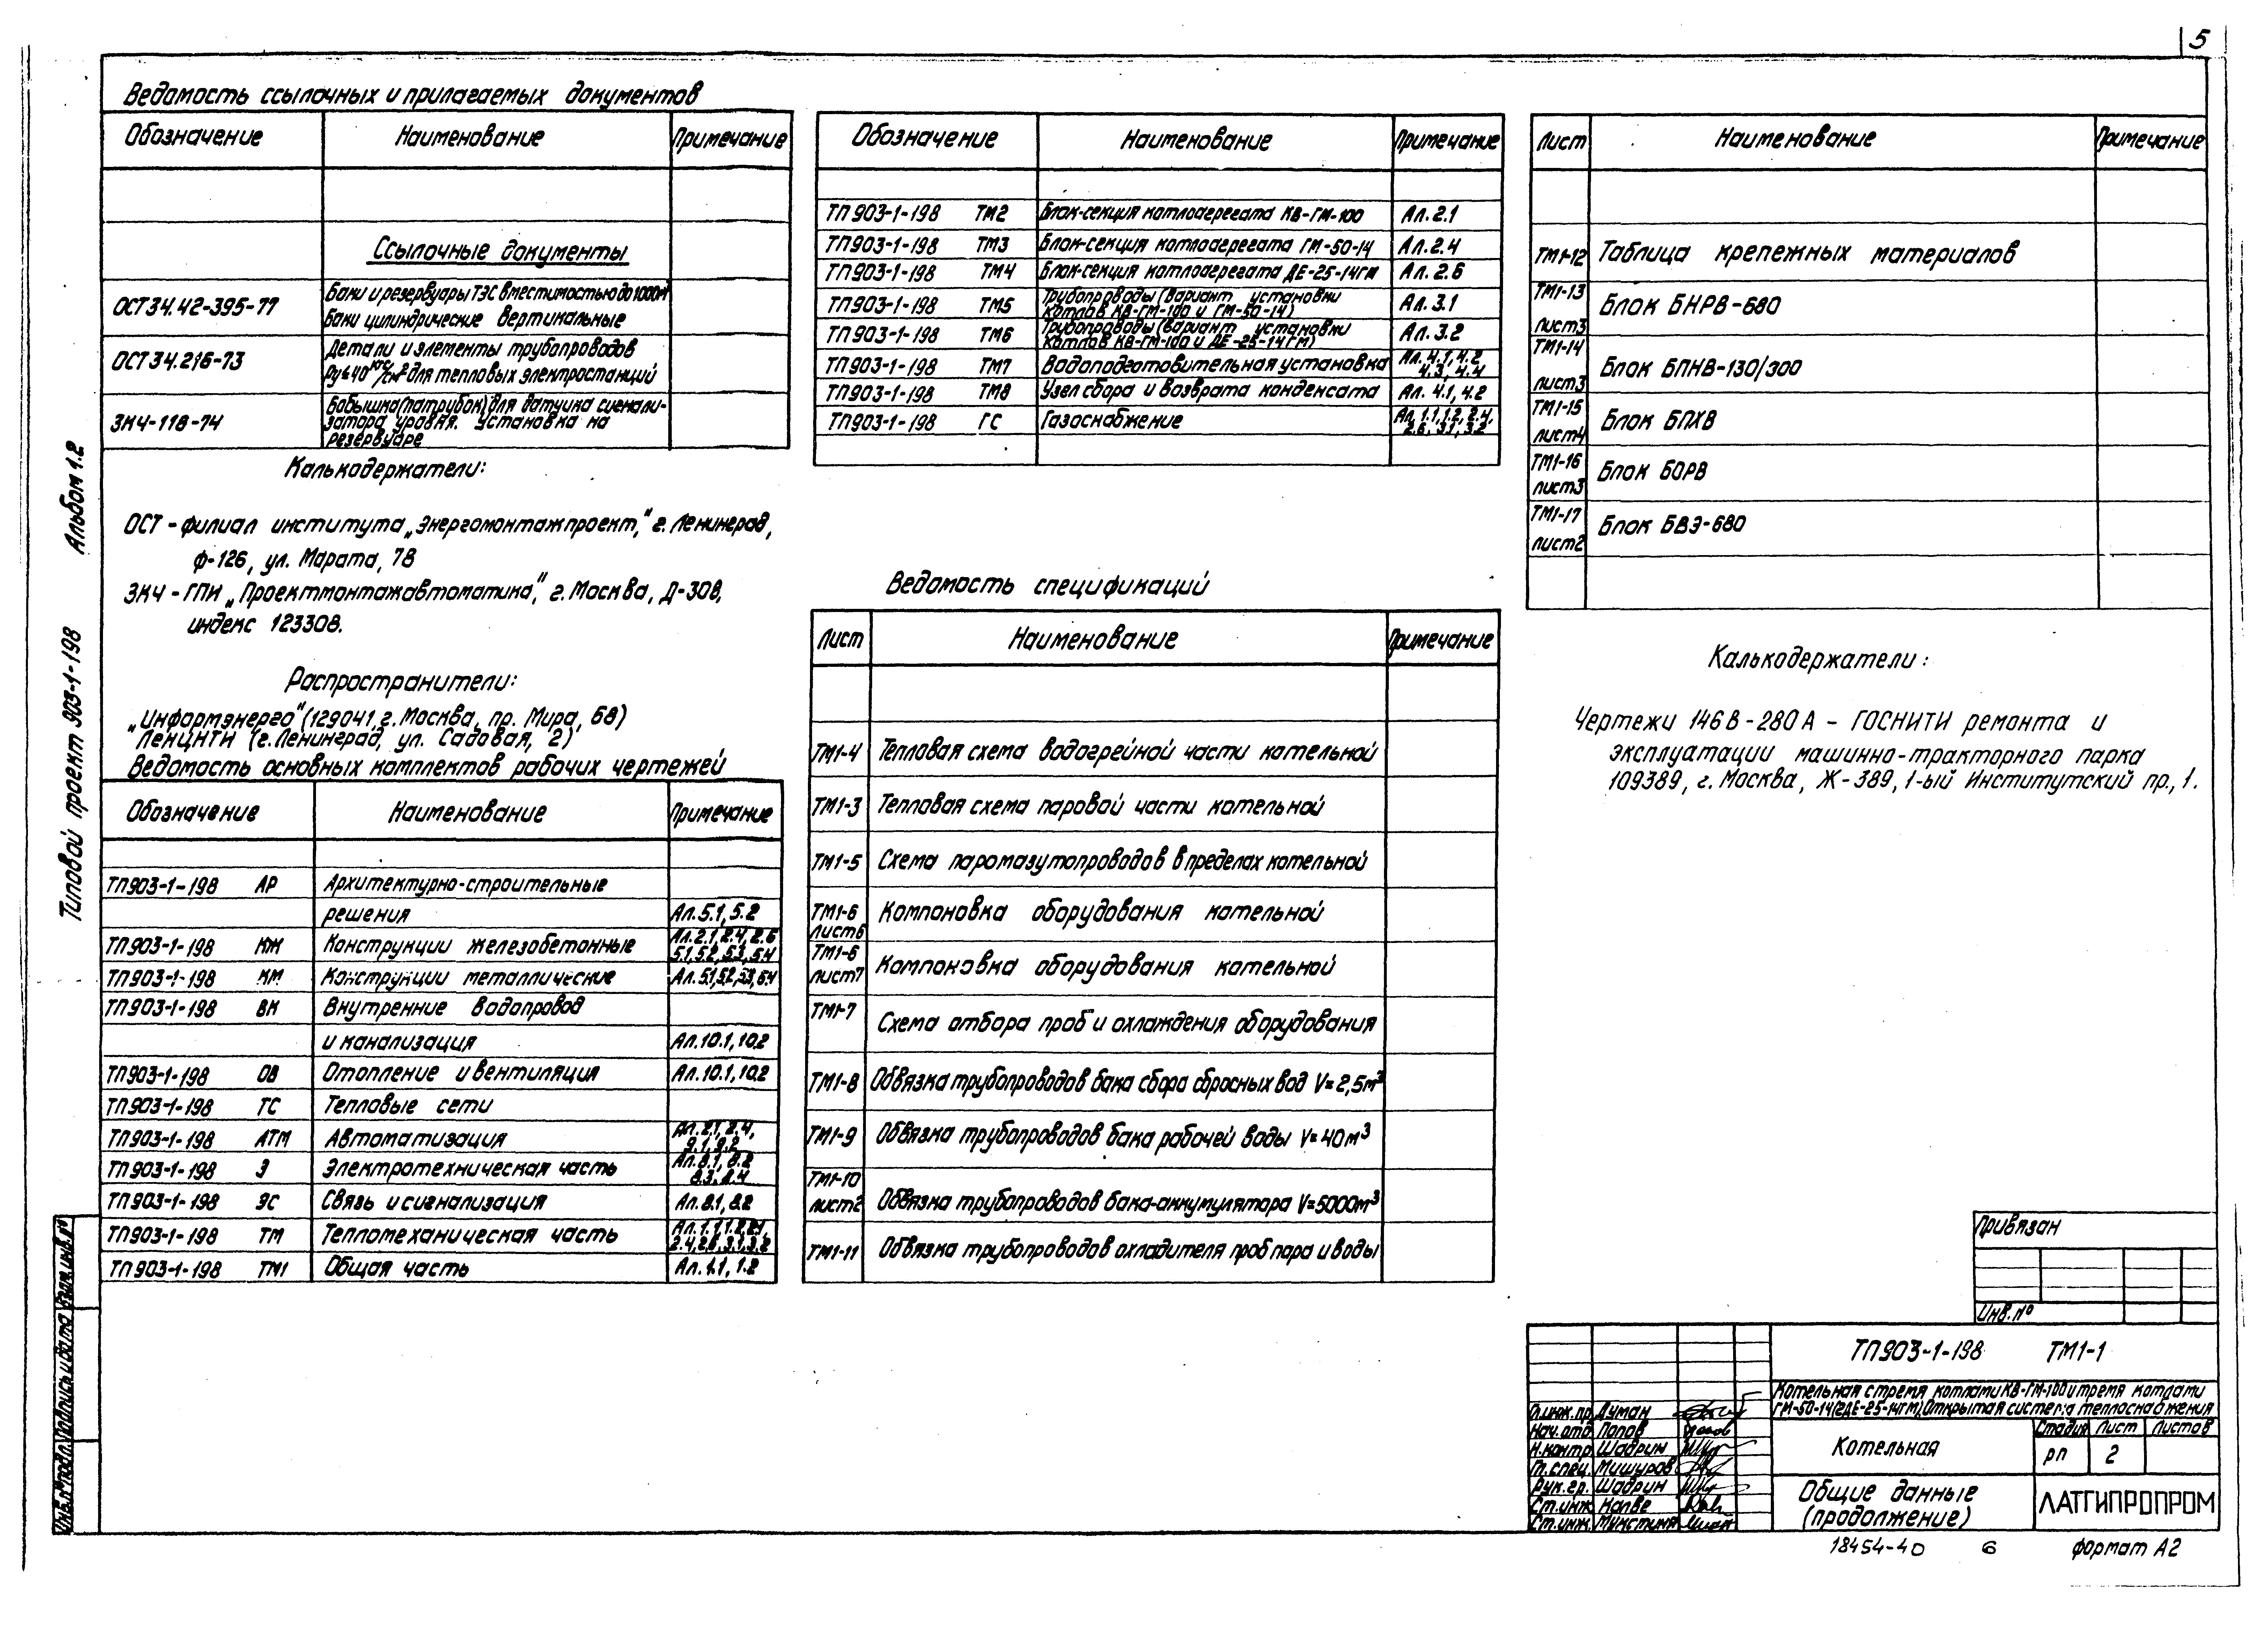 5
Ведомость ссылочных и прилагаемых документов
Обозначение Наименование Примечание
Ссылочные документы
ОСТ34.42-395-77 Баки и резервуары ТЭС вместимостью до 1000м³
Баки цилиндрические вертикальные
ОСТ34.216-73 Детали и элементы трубопроводов
Ру≤40 кгс/см² для тепловых электростанций
ЗК4-118-74 Бобышка(патрубок) для датчика сигнали-
затора уровня. Установка на
резервуаре
Калькодержатели:
ОСТ - филиал института „Энергомонтажпроект," г. Ленинград,
ф-126, ул. Марата, 78
ЗКЧ - ГПИ „Проектмонтажавтоматика," г. Москва, Д-308,
индекс 123308.
Распространители:
„Информэнерго" (129041, г. Москва, пр. Мира, 68)
"ЛЕНЦНТИ (г. Ленинград, ул. Садовая, 2)
Ведомость основных комплектов рабочих чертежей
Обозначение Наименование Примечание
ТП903-1-198 АР Архитектурно-строительные
решения Ал.5.1, 5.2
ТП903-1-198 КЖ Конструкции железобетонные Ал.2.1, 2.4, 2.6
5.1, 5.2, 5.3, 5.4
ТП903-1-198 КМ Конструкции металлические Ал.5.1, 5.2, 5.3, 5.4
ТП903-1-198 ВК Внутренние водопровод
и канализация Ал.10.1, 10.2
ТП903-1-198 ОВ Отопление и вентиляция Ал.10.1, 10.2
ТП903-1-198 ТС Тепловые сети
ТП903-1-198 АТМ Автоматизация Ал.2.1, 2.4,
9.1, 9.2
ТП903-1-198 Э Электротехническая часть Ал.8.1, 8.2
8.3, 8.4
ТП903-1-198 ЭС Связь и сигнализация Ал.8.1, 8.2
ТП903-1-198 ТМ Тепломеханическая часть Ал.1.1, 1.2, 2.1,
2.4, 2.6, 3.1, 3.2
ТП903-1-198 ТМ1 Общая часть Ал.1.1, 1.2
Обозначение Наименование Примечание
ТП903-1-198 ТМ2 Блок-секция котлоагрегата КВ-ГМ-100 Ал.2.1
ТП903-1-198 ТМ3 Блок-секция котлоагрегата ГМ-50-14 Ал.2.4
ТП903-1-198 ТМ4 Блок-секция котлоагрегата ДЕ-25-14ГМ Ал.2.6
ТП903-1-198 ТМ5 Трубопроводы (вариант установки
котлов КВ-ГМ-100 и ГМ-50-14) Ал.3.1
ТП903-1-198 ТМ6 Трубопроводы (вариант установки
котлов КВ-ГМ-100 и ДЕ-25-14ГМ) Ал.3.2
ТП903-1-198 ТМ7 Водоподготовительная установка Ал.4.1, 4.2
4.3, 4.4
ТП903-1-198 ТМ8 Узел сбора и возврата конденсата Ал. 4.1, 4.2
ТП903-1-198 ГС Газоснабжение Ал. 1.1, 1.2, 2.4,
2.6, 3.1, 3.2
Ведомость спецификаций
Лист Наименование Примечание
ТМ1-4 Тепловая схема водогрейной части котельной
ТМ1-3 Тепловая схема паровой части котельной
ТМ1-5 Схема паромазутопроводов в пределах котельной
ТМ1-6
лист6 Компоновка оборудования котельной
ТМ1-6
лист7 Компоновка оборудования котельной
ТМ1-7 Схема отбора проб и охлаждения оборудования
ТМ1-8 Обвязка трубопроводов бака сбора сбросных вод V=2,5м³
ТМ1-9 Обвязка трубопроводов бака рабочей воды V=40м³
ТМ1-10
лист2 Обвязка трубопроводов бака-аккумулятора V=5000м³
ТМ1-11 Обвязка трубопроводов охладителя проб пара и воды
Лист Наименование Примечание
ТМ1-12 Таблица крепежных материалов
ТМ1-13
лист3 Блок БНРВ-680
ТМ1-14
лист3 Блок БПНВ-130/300
ТМ1-15
лист4 Блок БПХВ
ТМ1-16
лист3 Блок БОРВ
ТМ1-17
лист2 Блок БВЭ-680
Калькодержатели:
Чертежи 146В-280А - ГОСНИТИ ремонта и
эксплуатации машинно-тракторного парка
109389, г. Москва, Ж-389, 1-ый Институтский пр., 1.
Типовой проект 903-1-198 Альбом 1.2
Инв.№подл. Подпись и дата Взам.инв.№
Привязан
Инв.№
ТП903-1-198 ТМ1-1
Котельная с тремя котлами КВ-ГМ-100 и тремя котлами
ГМ-50-14(2ДЕ-25-14ГМ). Открытая система теплоснабжения
Гл.инж.пр. Думан
Нач.отд. Попов
Н.контр. Шадрин
Гл.спец. Мишуров
Рук.гр. Шадрин
Ст.инж. Калве
Ст.инж.
Котельная
Стадия Лист Листов
рп 2
Общие данные
(продолжение)
ЛАТГИПРОПРОМ
18454-40 6 формат А2